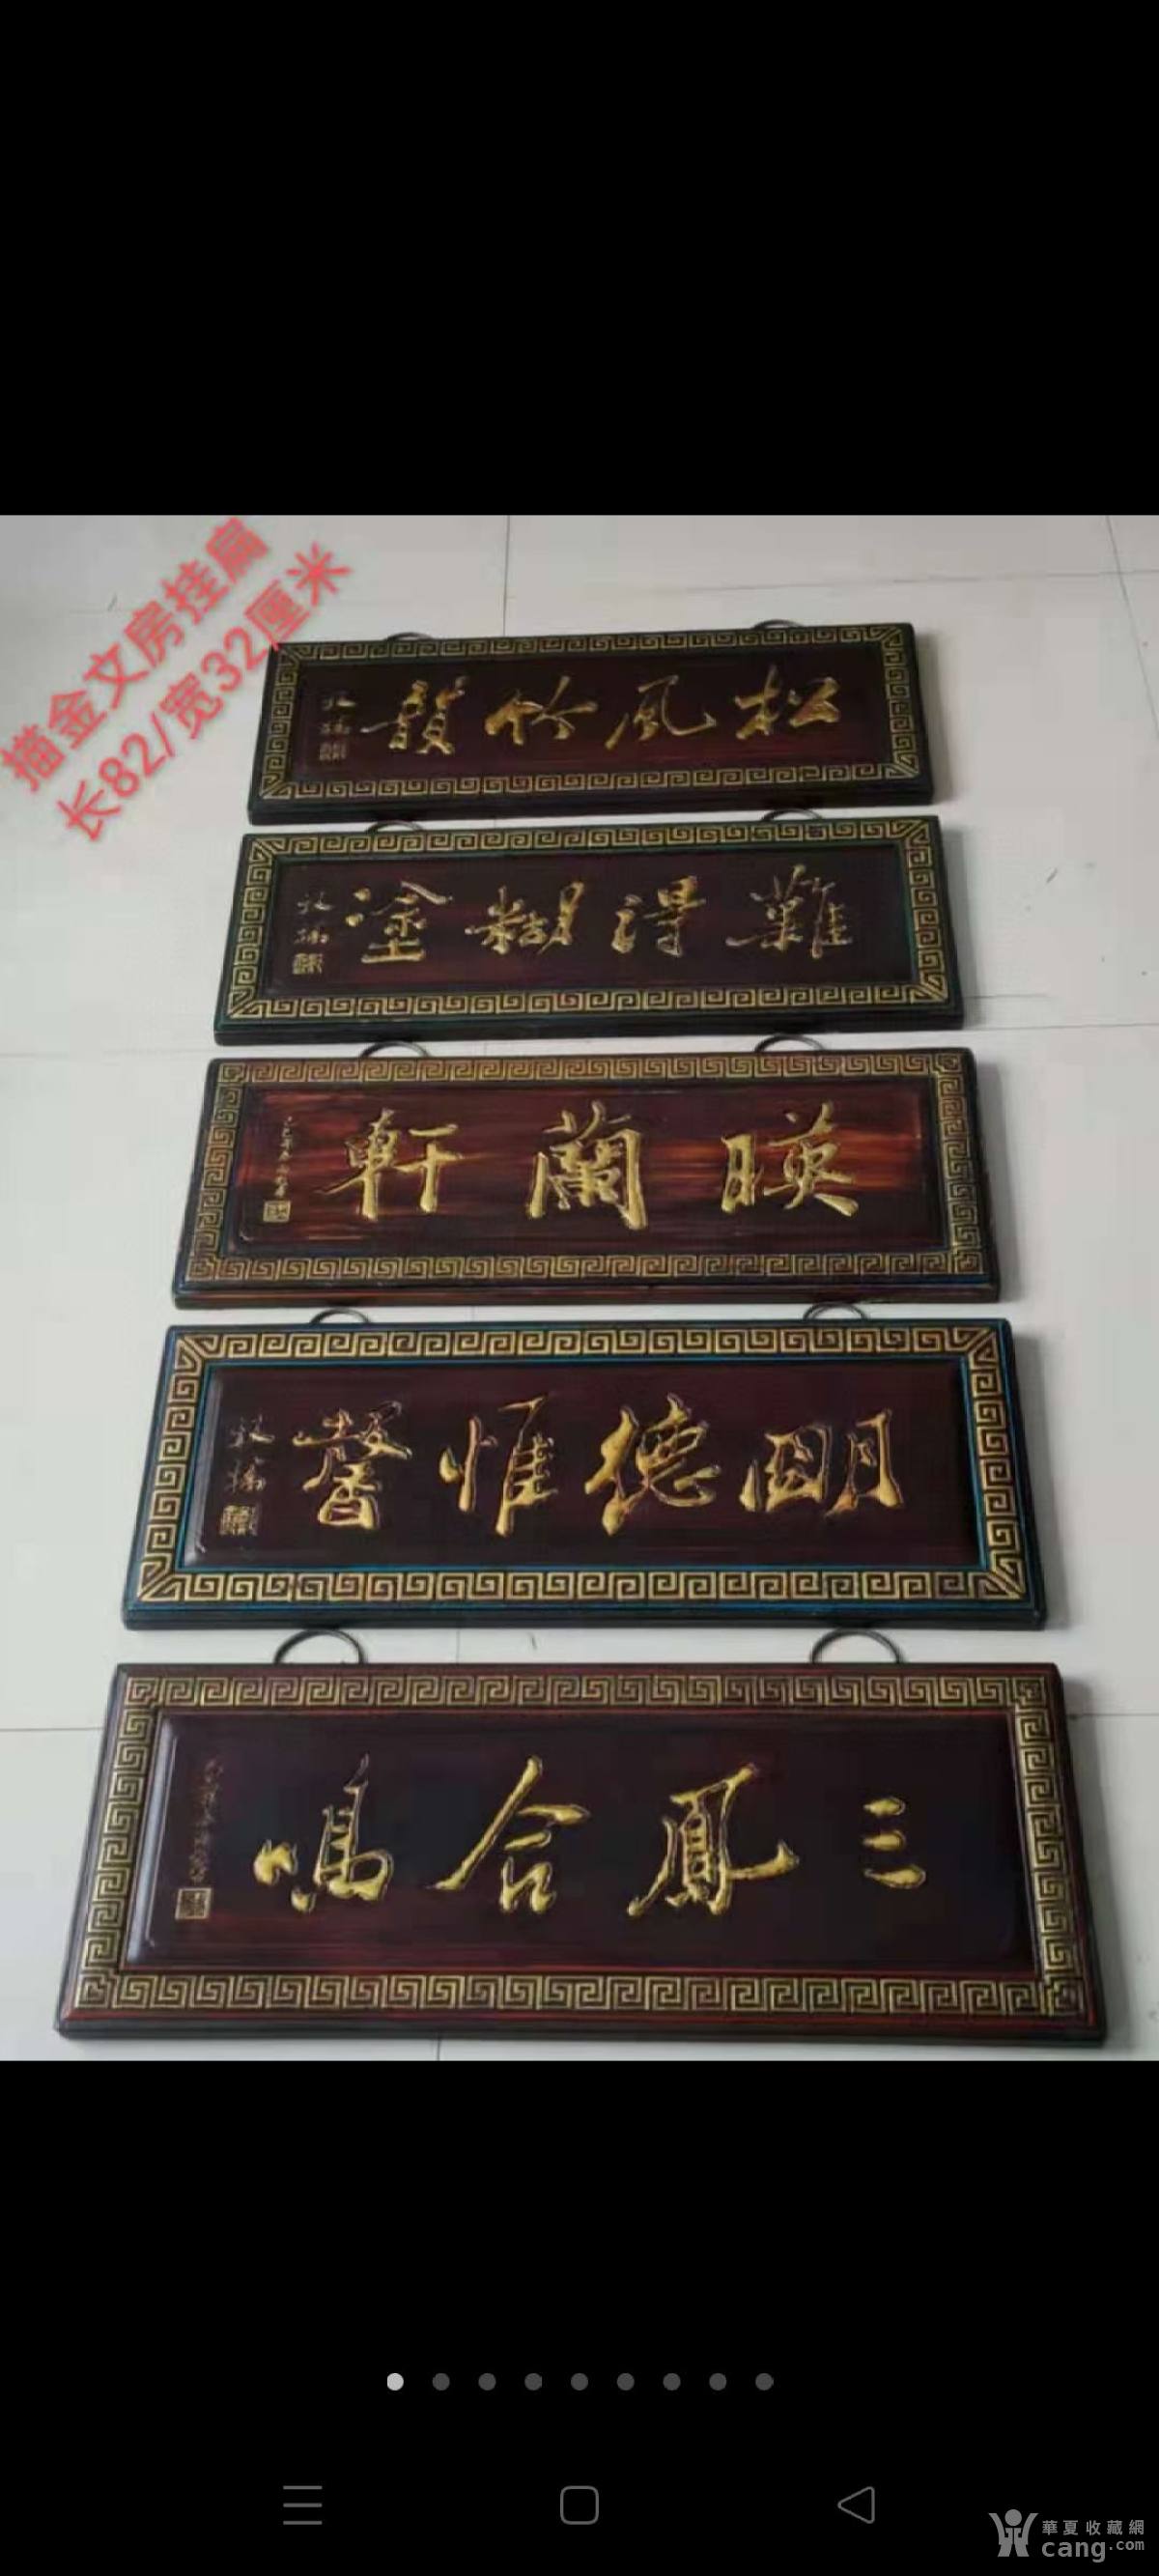 描金文房挂扁
长82/宽32厘米
松風竹韻
難得糊塗
板橋
暎蘭軒
明德惟馨
板橋
三鳳合鳴
華夏收藏網
cang.com